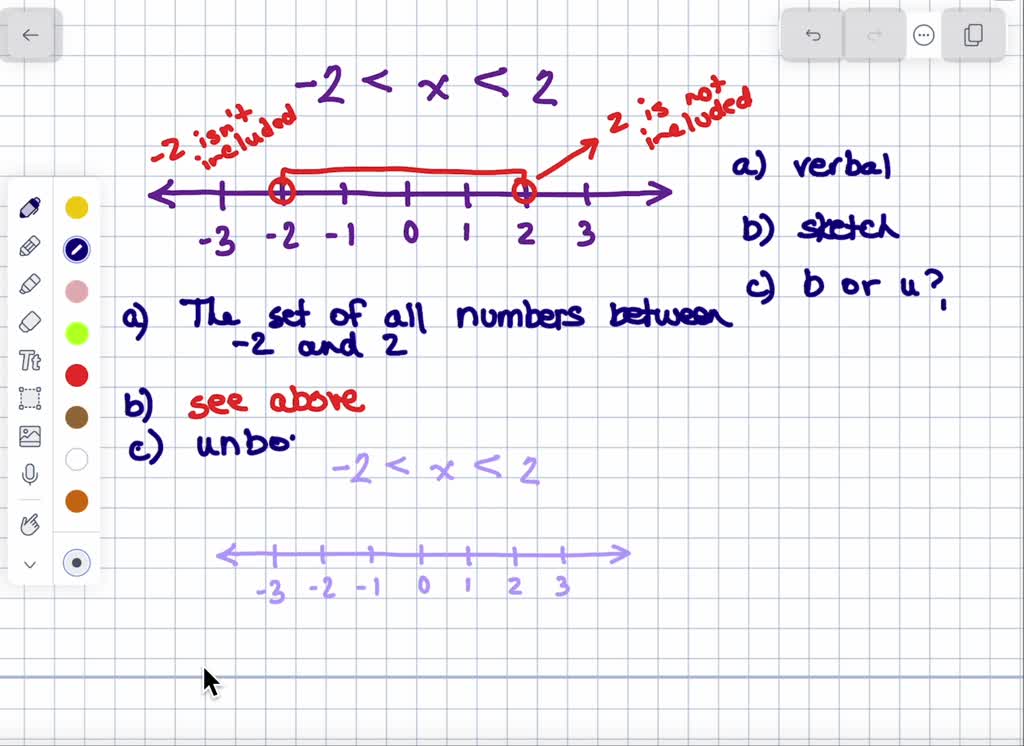 -2 < x < 2
-2 isn't
included
2 is not
included
-3 -2 -1 0 1 2 3
a) verbal
b) sketch
c) b or u?
a) The set of all numbers between
-2 and 2
b) see above
c) unbo
-2 < x < 2
-3 -2 -1 0 1 2 3
Tt